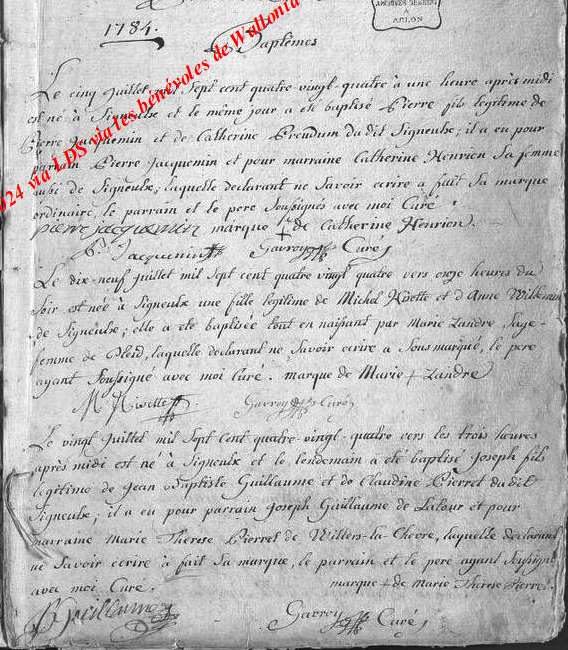 ARCHIVES DE L'ETAT
A
ARLON
1784.
Baptêmes
024 via LDS via les bénévoles de Wallonia
Le cinq juillet mil Sept cent quatre-vingt-quatre à une heure après midi
est né à Signeulx et le même jour a eté baptisé Pierre fils legitime de
Pierre Jacquemin et de Catherine Prendum dudit Signeulx; il a eu pour
parrain Pierre Jacquemin et pour marraine Catherine Henrion Sa femme
aussi de Signeulx, laquelle declarant ne Savoir ecrire a fait Sa marque
ordinaire, le parrain et le pere Soussignés avec moi Curé.
pierre jacquemin marque + de Catherine Henrion.
P. Jacquemin Gavroy Curé
Le dix-neuf juillet mil Sept cent quatre vingt quatre vers onze heures du
Soir est née à Signeulx une fille legitime de Michel Hisette et d'Anne Willemin
de Signeulx; elle a eté baptisée tout en naissant par Marie Landre Sage-
femme de Pleid, laquelle declarant ne Savoir ecrire a Sousmarqué, le pere
ayant Soussigné avec moi Curé. marque de Marie + Landre
M Hisette Gavroy Curé
Le vingt juillet mil Sept cent quatre-vingt-quatre vers les trois heures
après midi est né à Signeulx et le lendemain a eté baptisé Joseph fils
legitime de Jean Baptiste Guillaume et de Claudine Pierret dudit
Signeulx; il a eu pour parrain Joseph Guillaume de Latour et pour
marraine Marie Therese Pierret de Willers-la-Chevre, laquelle declarant
ne Savoir ecrire à fait Sa marque, le parrain et le pere ayant Soussigné
avec moi Curé. marque + de Marie Therese Pierret
Guillaume Gavroy Curé